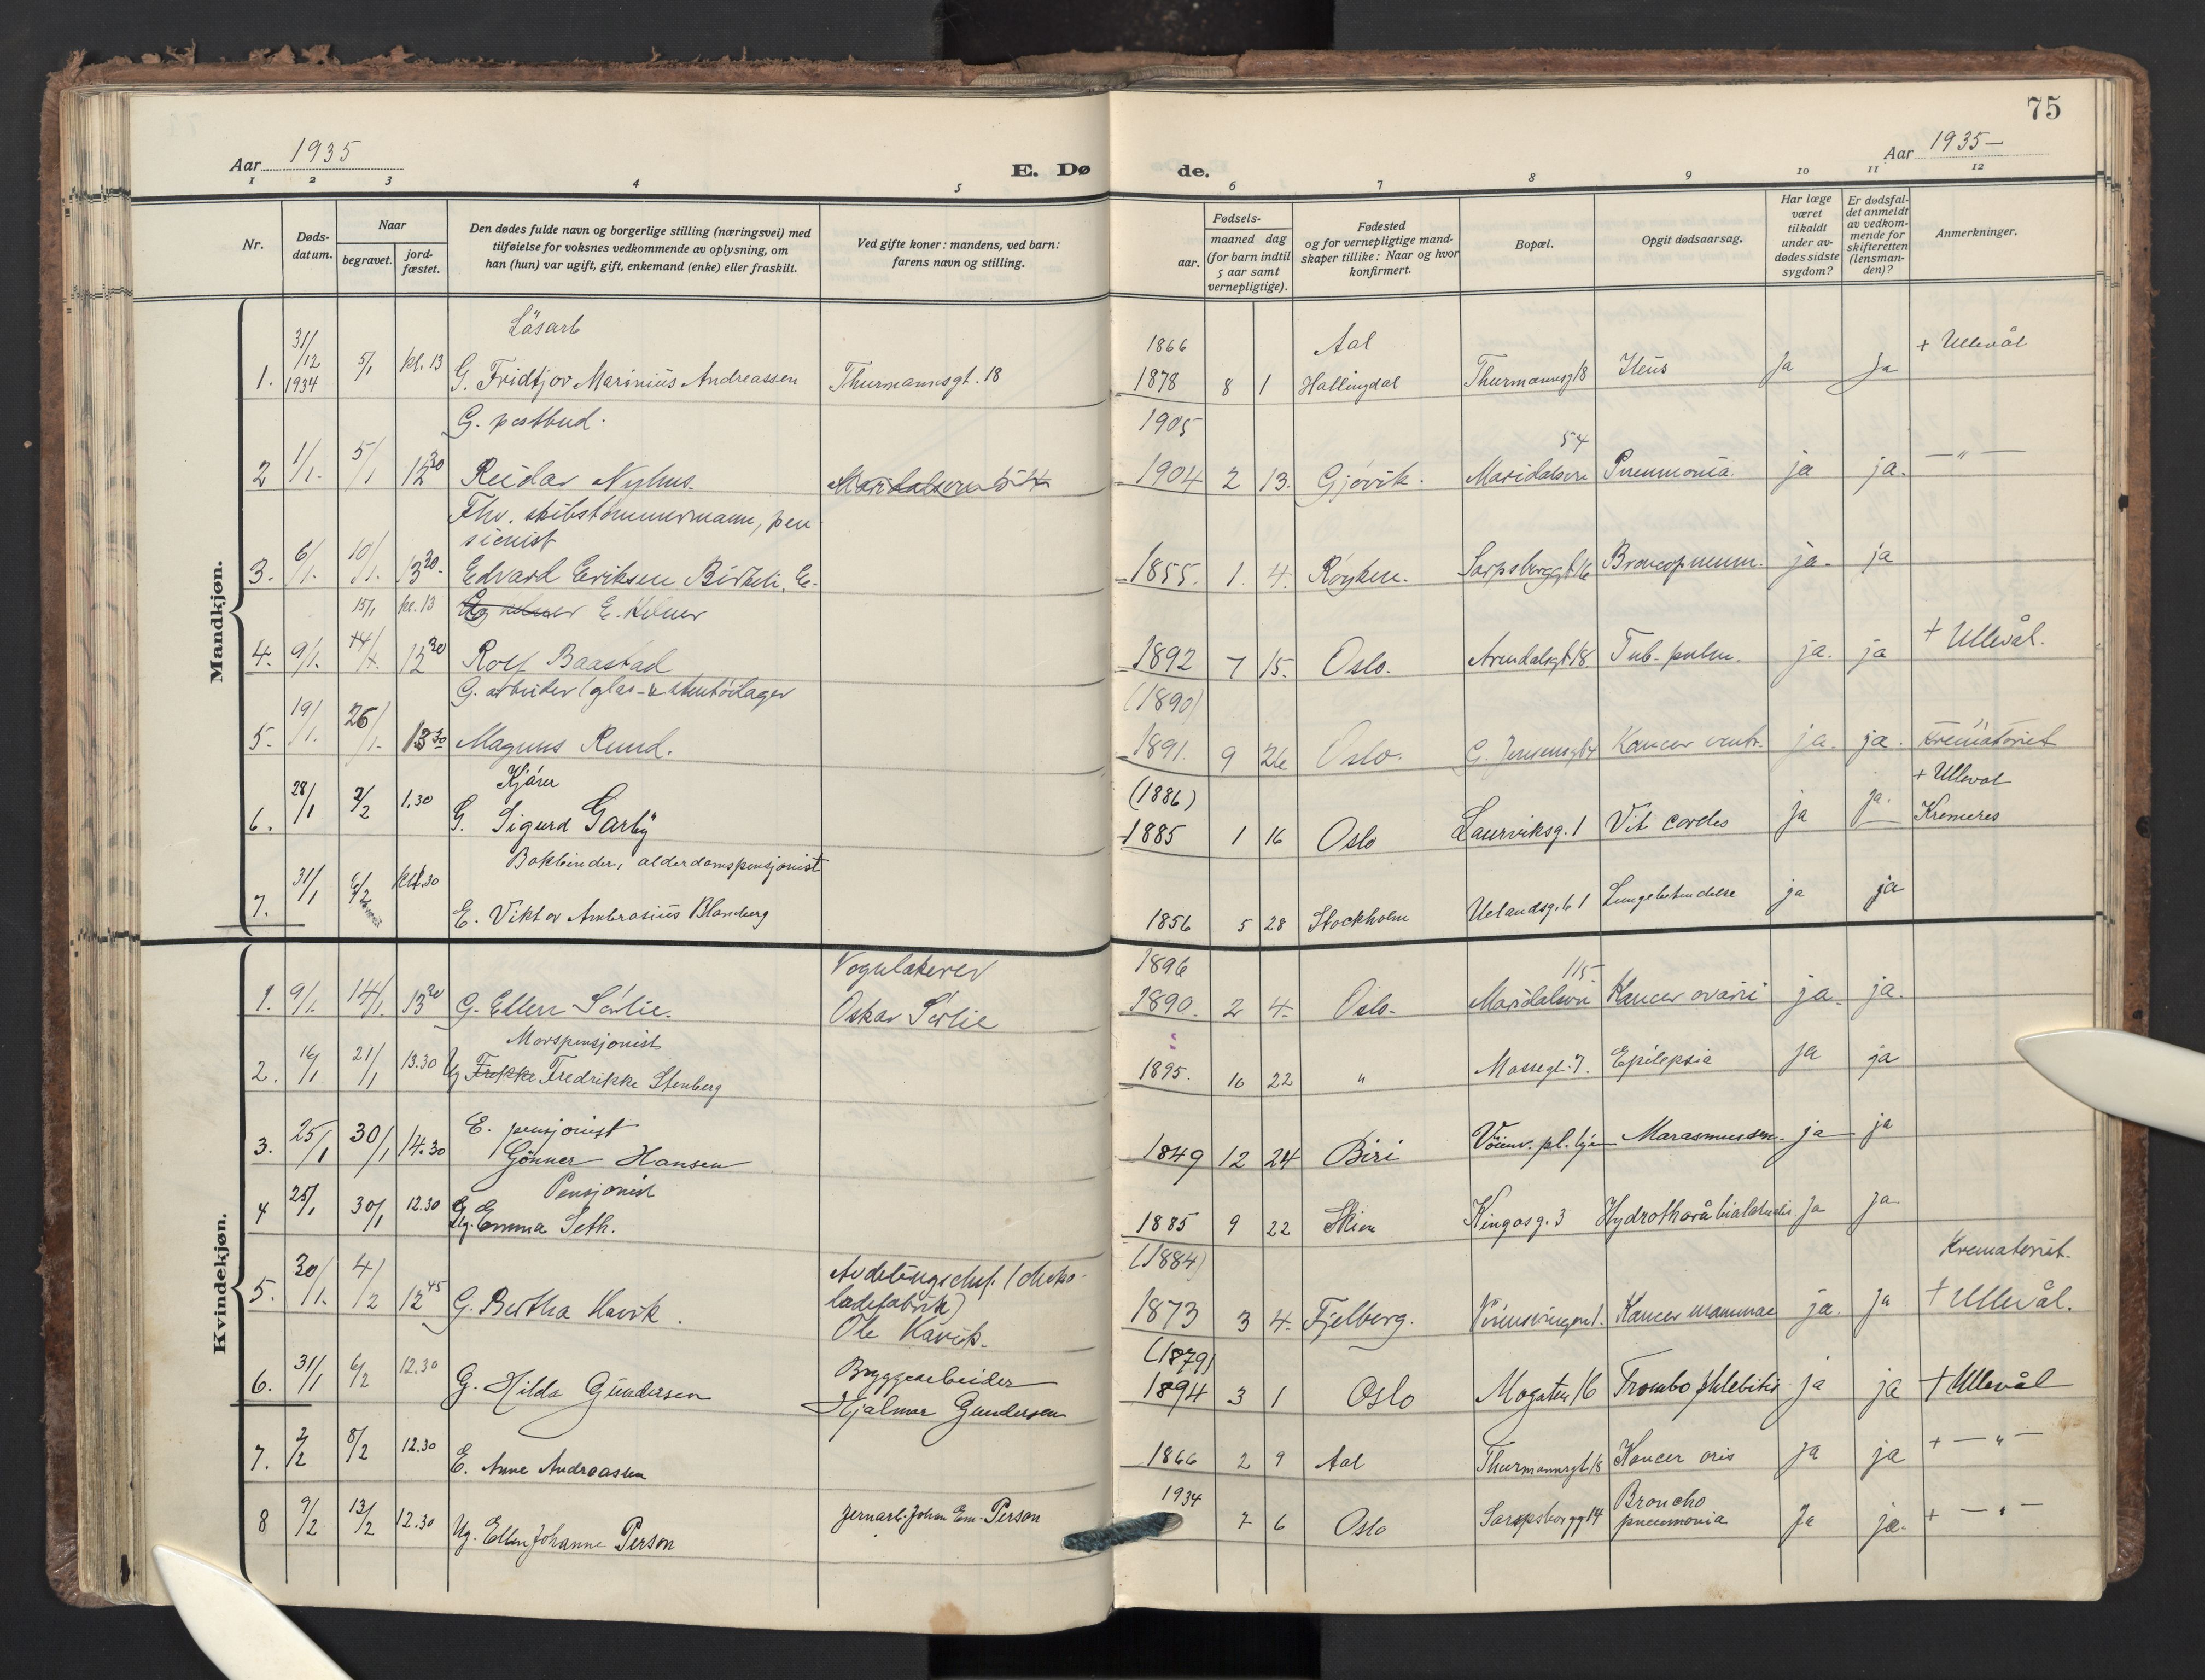 75
Aar 1935
Aar 1935—
E. Dø de.
1 2 3 4 5 6 7 8 9 10 11 12
Nr.
Døds-datum.
Naar
begravet.
jord-fæstet.
Den dødes fulde navn og borgerlige stilling (næringsvei) med
tilføielse for voksnes vedkommende av oplysning, om
han (hun) var ugift, gift, enkemand (enke) eller fraskilt.
Ved gifte koner: mandens, ved barn:
farens navn og stilling.
Fødsels-
aar.
maaned dag
(for barn indtil
5 aar samt
vernepligtige).
Fødested
og for vernepligtige mand-
skaper tillike: Naar og hvor
konfirmert.
Bopæl.
Opgit dødsaarsag.
Har læge
været
tilkaldt
under av-
dødes sidste
sygdom?
Er dødsfal-
det anmeldt
av vedkom-
mende for
skifteretten
(lensman-
den)?
Anmerkninger.
Mandkjøn.
Løsarb 1866 Aal + Ullevål
1. 31/12 1934 5/1 kl. 13 G. Fridtjov Marinius Andreassen Thurmannsgt. 18 1878 8 1 Hallingdal Thurmannsg 18 Ileus Ja Ja
G. postbud. 1905 54
2 1/1. 5/1 12 30 Reidar Nyhus. Maridalsvn 54 1904 2 13. Gjøvik. Maridalsvn Pneumonia. ja ja. — " —
Fhv. skibstømmermann, pen
sionist
3. 6/1. 10/1. 13 20. Edvard Eriksen Birkeli. E. 1855. 1. 4. Røyken. Sarpsborggt 16 Broncopneum. ja. ja
15/1 kl. 13 E. Kelner
4. 9/1. 14/1. 12 30 Rolf Baastad 1892 7 15. Oslo. Arendalsgt 18 Tub. pulm. ja. ja + Ullevål.
G. arbeider (glas- & stentøilager (1890)
5. 19/1. 26/1. 13 30 Magnus Rund. 1891. 9 26 Oslo. G. Jensensgt 4 Kancer ventr. ja. ja. Krematoriet
Kjører (1886) + Ullevål
6. 28/1 2/2 1.30 G. Sigurd Garby 1885 1 16 Oslo Laurviksg. 1 Vit cordis ja ja. Kremeres
Bokbinder, alderdomspensjonist
7. 31/1 6/2 kl 1.30 E. Viktor Ambrosius Blomberg 1856 5 28 Stockholm Uelandsg. 61 Lungebetendelse ja ja
Kvindekjøn.
Vognlakerer 1896 115
1. 9/1. 14/1. 13 20 G. Ellen Sørlie. Oskar Sørlie 1890. 2 4. Oslo. Maridalsvn Kancer ovarii ja. ja.
Morspensjonist
2. 16/1 21/1 13.30 Ug Frekke Fredrikke Stenberg 1895. 10 22 " Mossegt. 7. Epilepsia ja ja
E. pensjonist
3. 25/1 30/1 14.30 Gønner Hansen 1849 12 24 Biri Vöienv. pl. hjem Marasmus sen. ja ja
Pensjonist
4 25/1 30/1 12.30 Ug. Emma Seth. 1885 9 22 Skien Kingosg. 3 Ja ja
Avdelingschef (choko- (1884) Krematoriet.
ladefabrik)
5. 30/1. 4/2 12 45 G. Bertha Havik. Ole Havik. 1873 3 4. Fjelberg. Vöiensvingen 1. Kancer mammae ja. ja + Ullevål.
Bryggearbeider (1879)
6. 31/1 6/2 12.30 G. Hilda Gundersen Hjalmar Gundersen 1894 3 1 Oslo Mogaten 16 Trombophlebitis ja ja + Ullevål
7. 2/2 8/2 12.30 E. Anne Andreassen 1866 2 9 Aal Thurmannsgt 18 Kancer oris ja ja + — " —
1934 Broncho
8 9/2 13/2 12.30 Ug. Ellen Johanne Person Jernarb. Johan Em. Person 7 6 Oslo Sarpsborgg 14 pneumonia Ja ja. + — " —